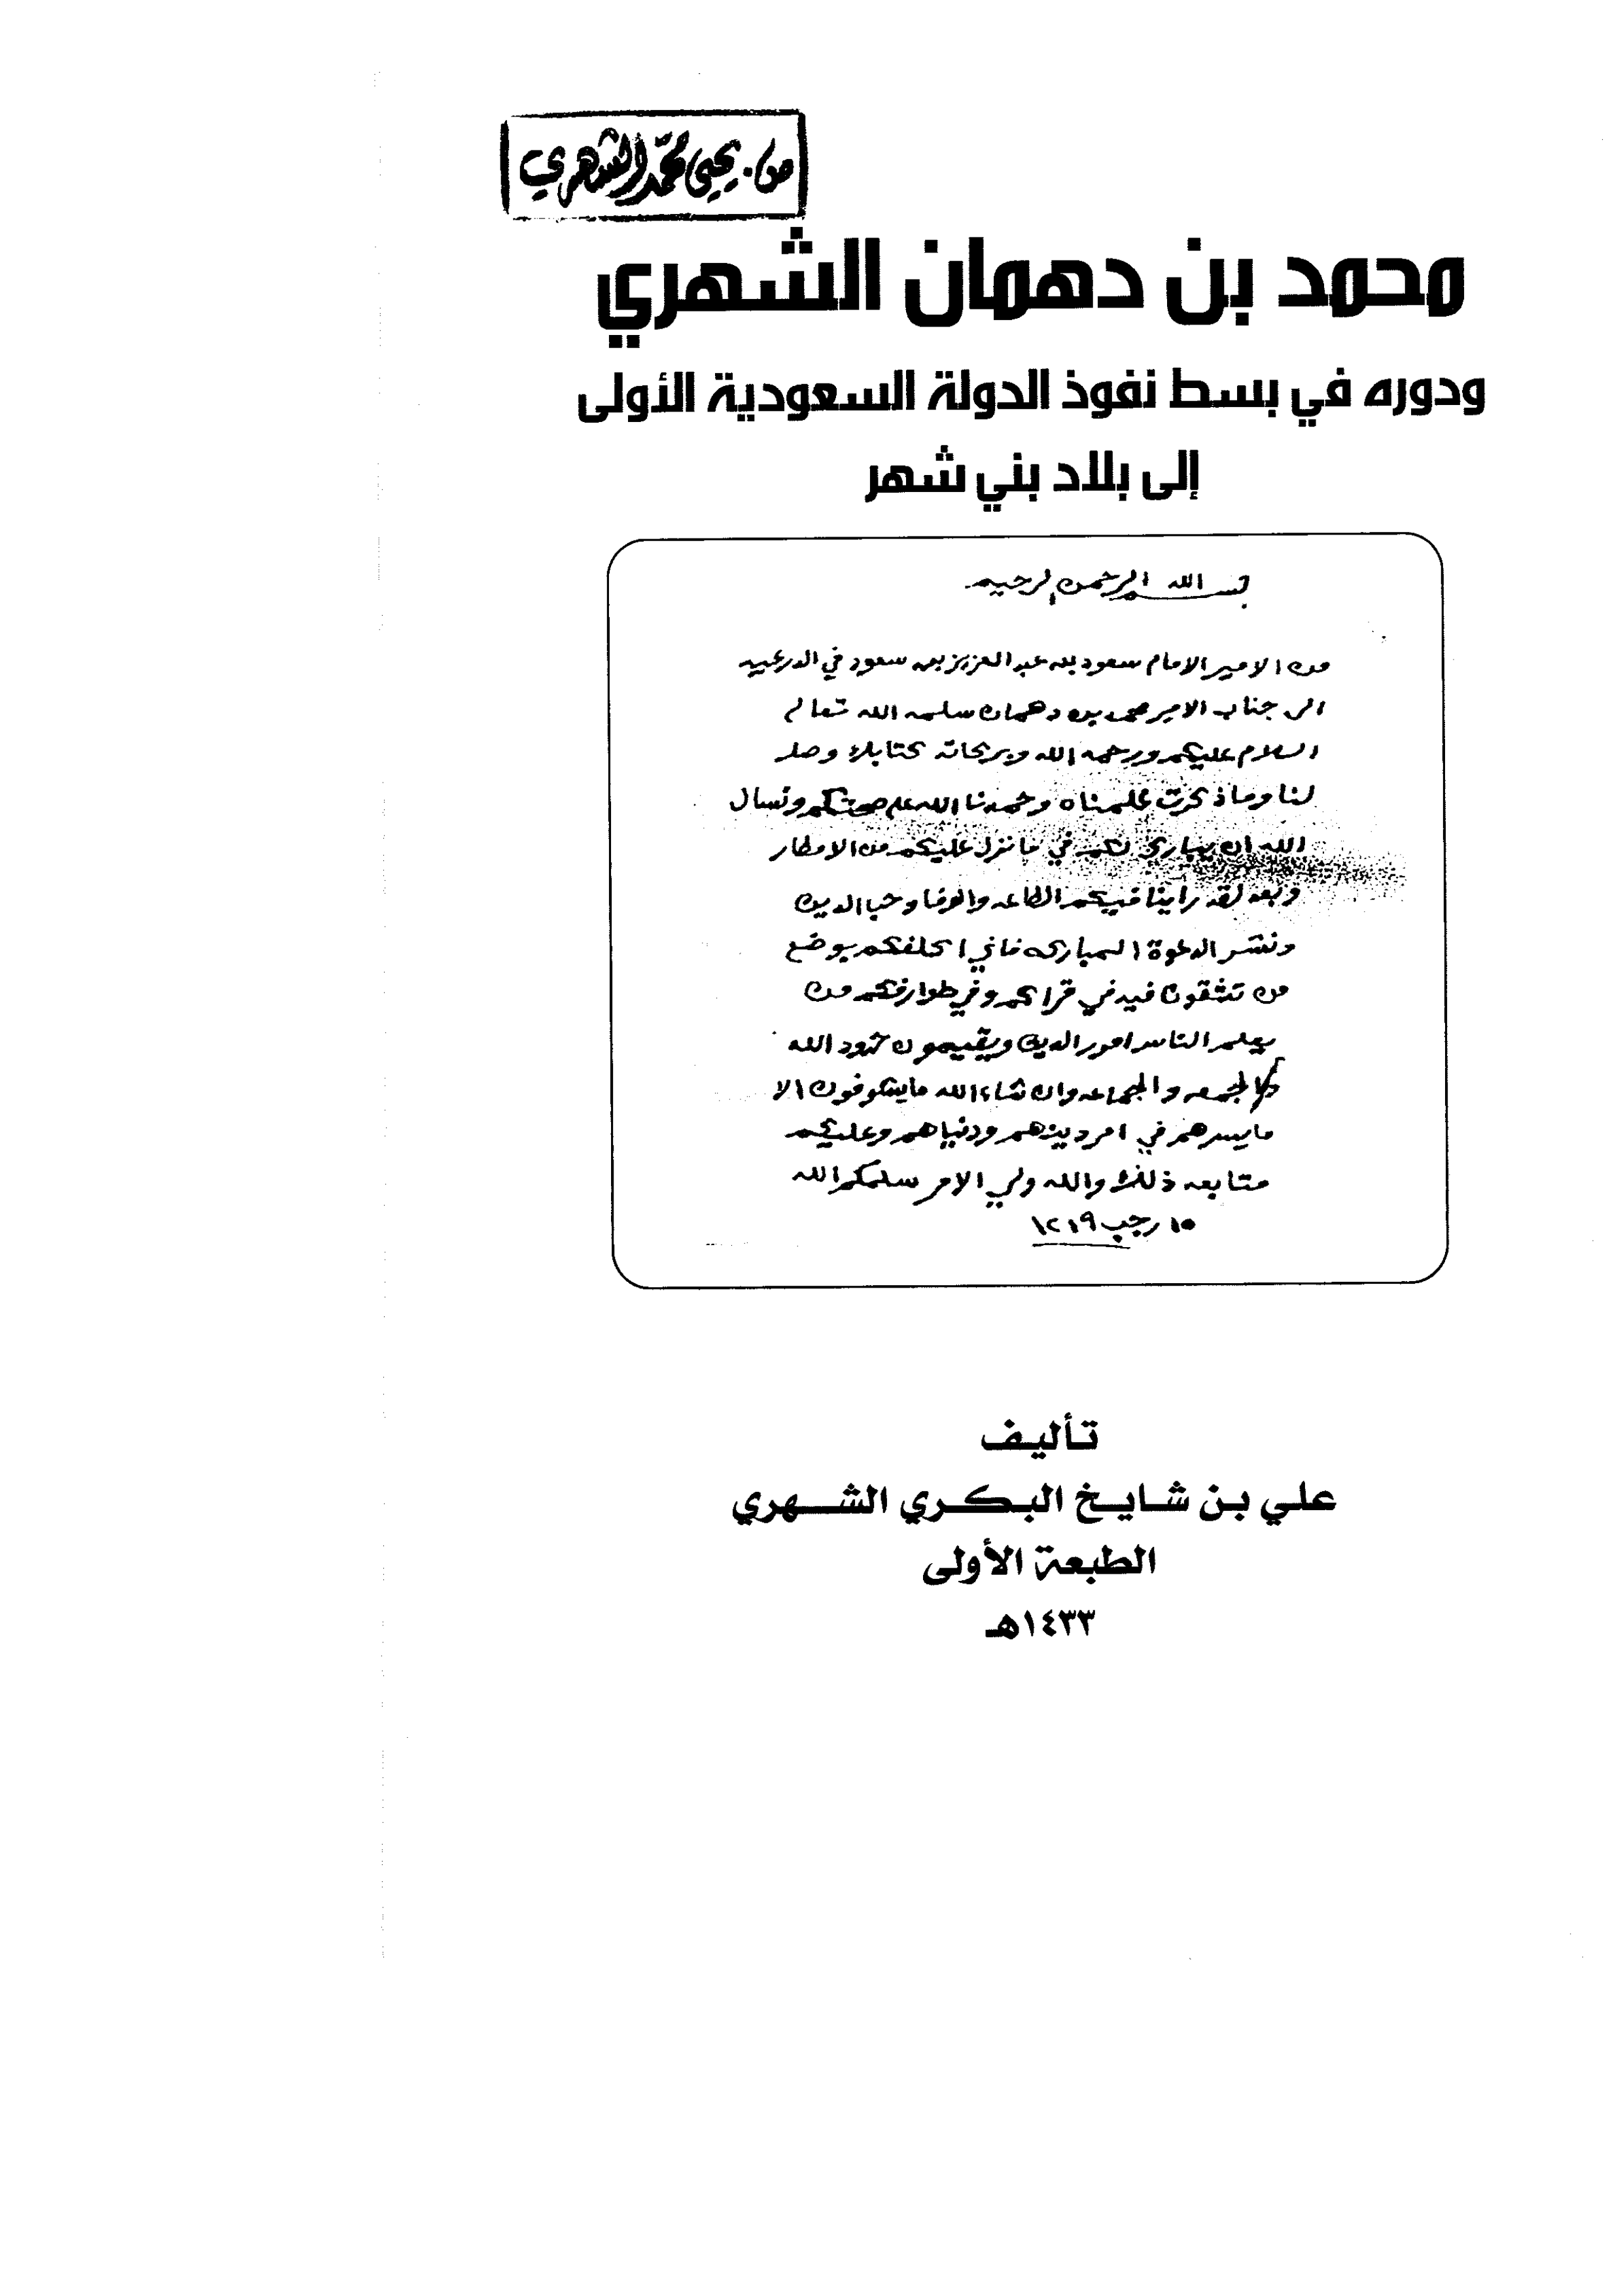 من. يحيى محمد الشهري
محمد بن دهمان الشهري
ودوره في بسط نفوذ الدولة السعودية الأولى
إلى بلاد بني شهر
بسم الله الرحمن الرحيم
من الامير الامام سعود بن عبد العزيز بن سعود في الدرعيه
الى جناب الامير محمد بن دهمان سلمه الله تعالى
السلام عليكم ورحمه الله وبركاته كتابك وصل
لنا وما ذكرت علمناه وحمدنا الله على صحتكم ونسال
الله ان يبارك لكم في ما نزل عليكم من الامطار
وبعد لقد راينا فيكم الطاعه والوفا وحب الدين
ونشر الدعوة المباركه فاني اكلفكم بوضع
من تثقون فيه في قراكم وفي طوارفكم من
يعلم الناس امور الدين ويقيمون حدود الله
والجمعه والجماعه وان شاء الله ما يشوفون الا
ما يسرهم في امر دينهم ودنياهم وعليكم
متابعه ذلك والله ولي الامر سلمكم الله
١٥ رجب ١٢١٩
تأليف
علي بن شايخ البكري الشهري
الطبعة الأولى
١٤٣٣هـ